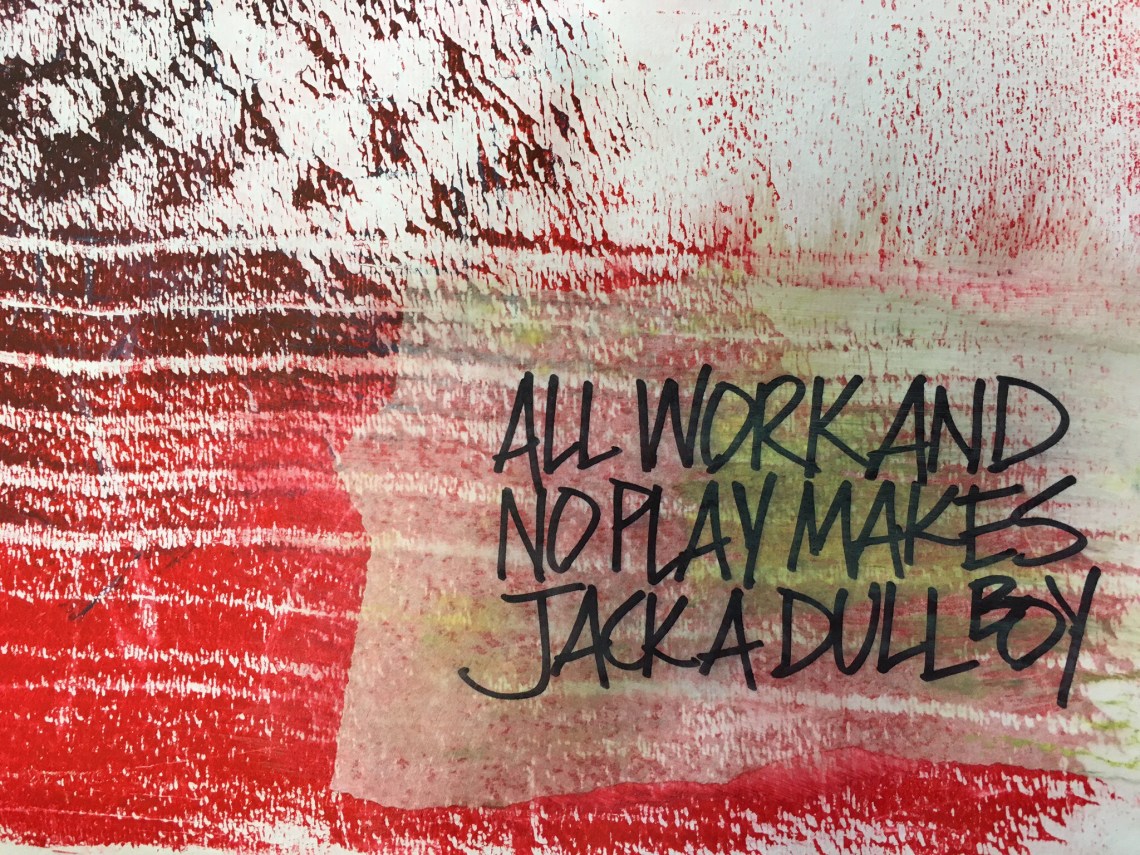 ALL WORK AND
NO PLAY MAKES
JACK A DULL BOY